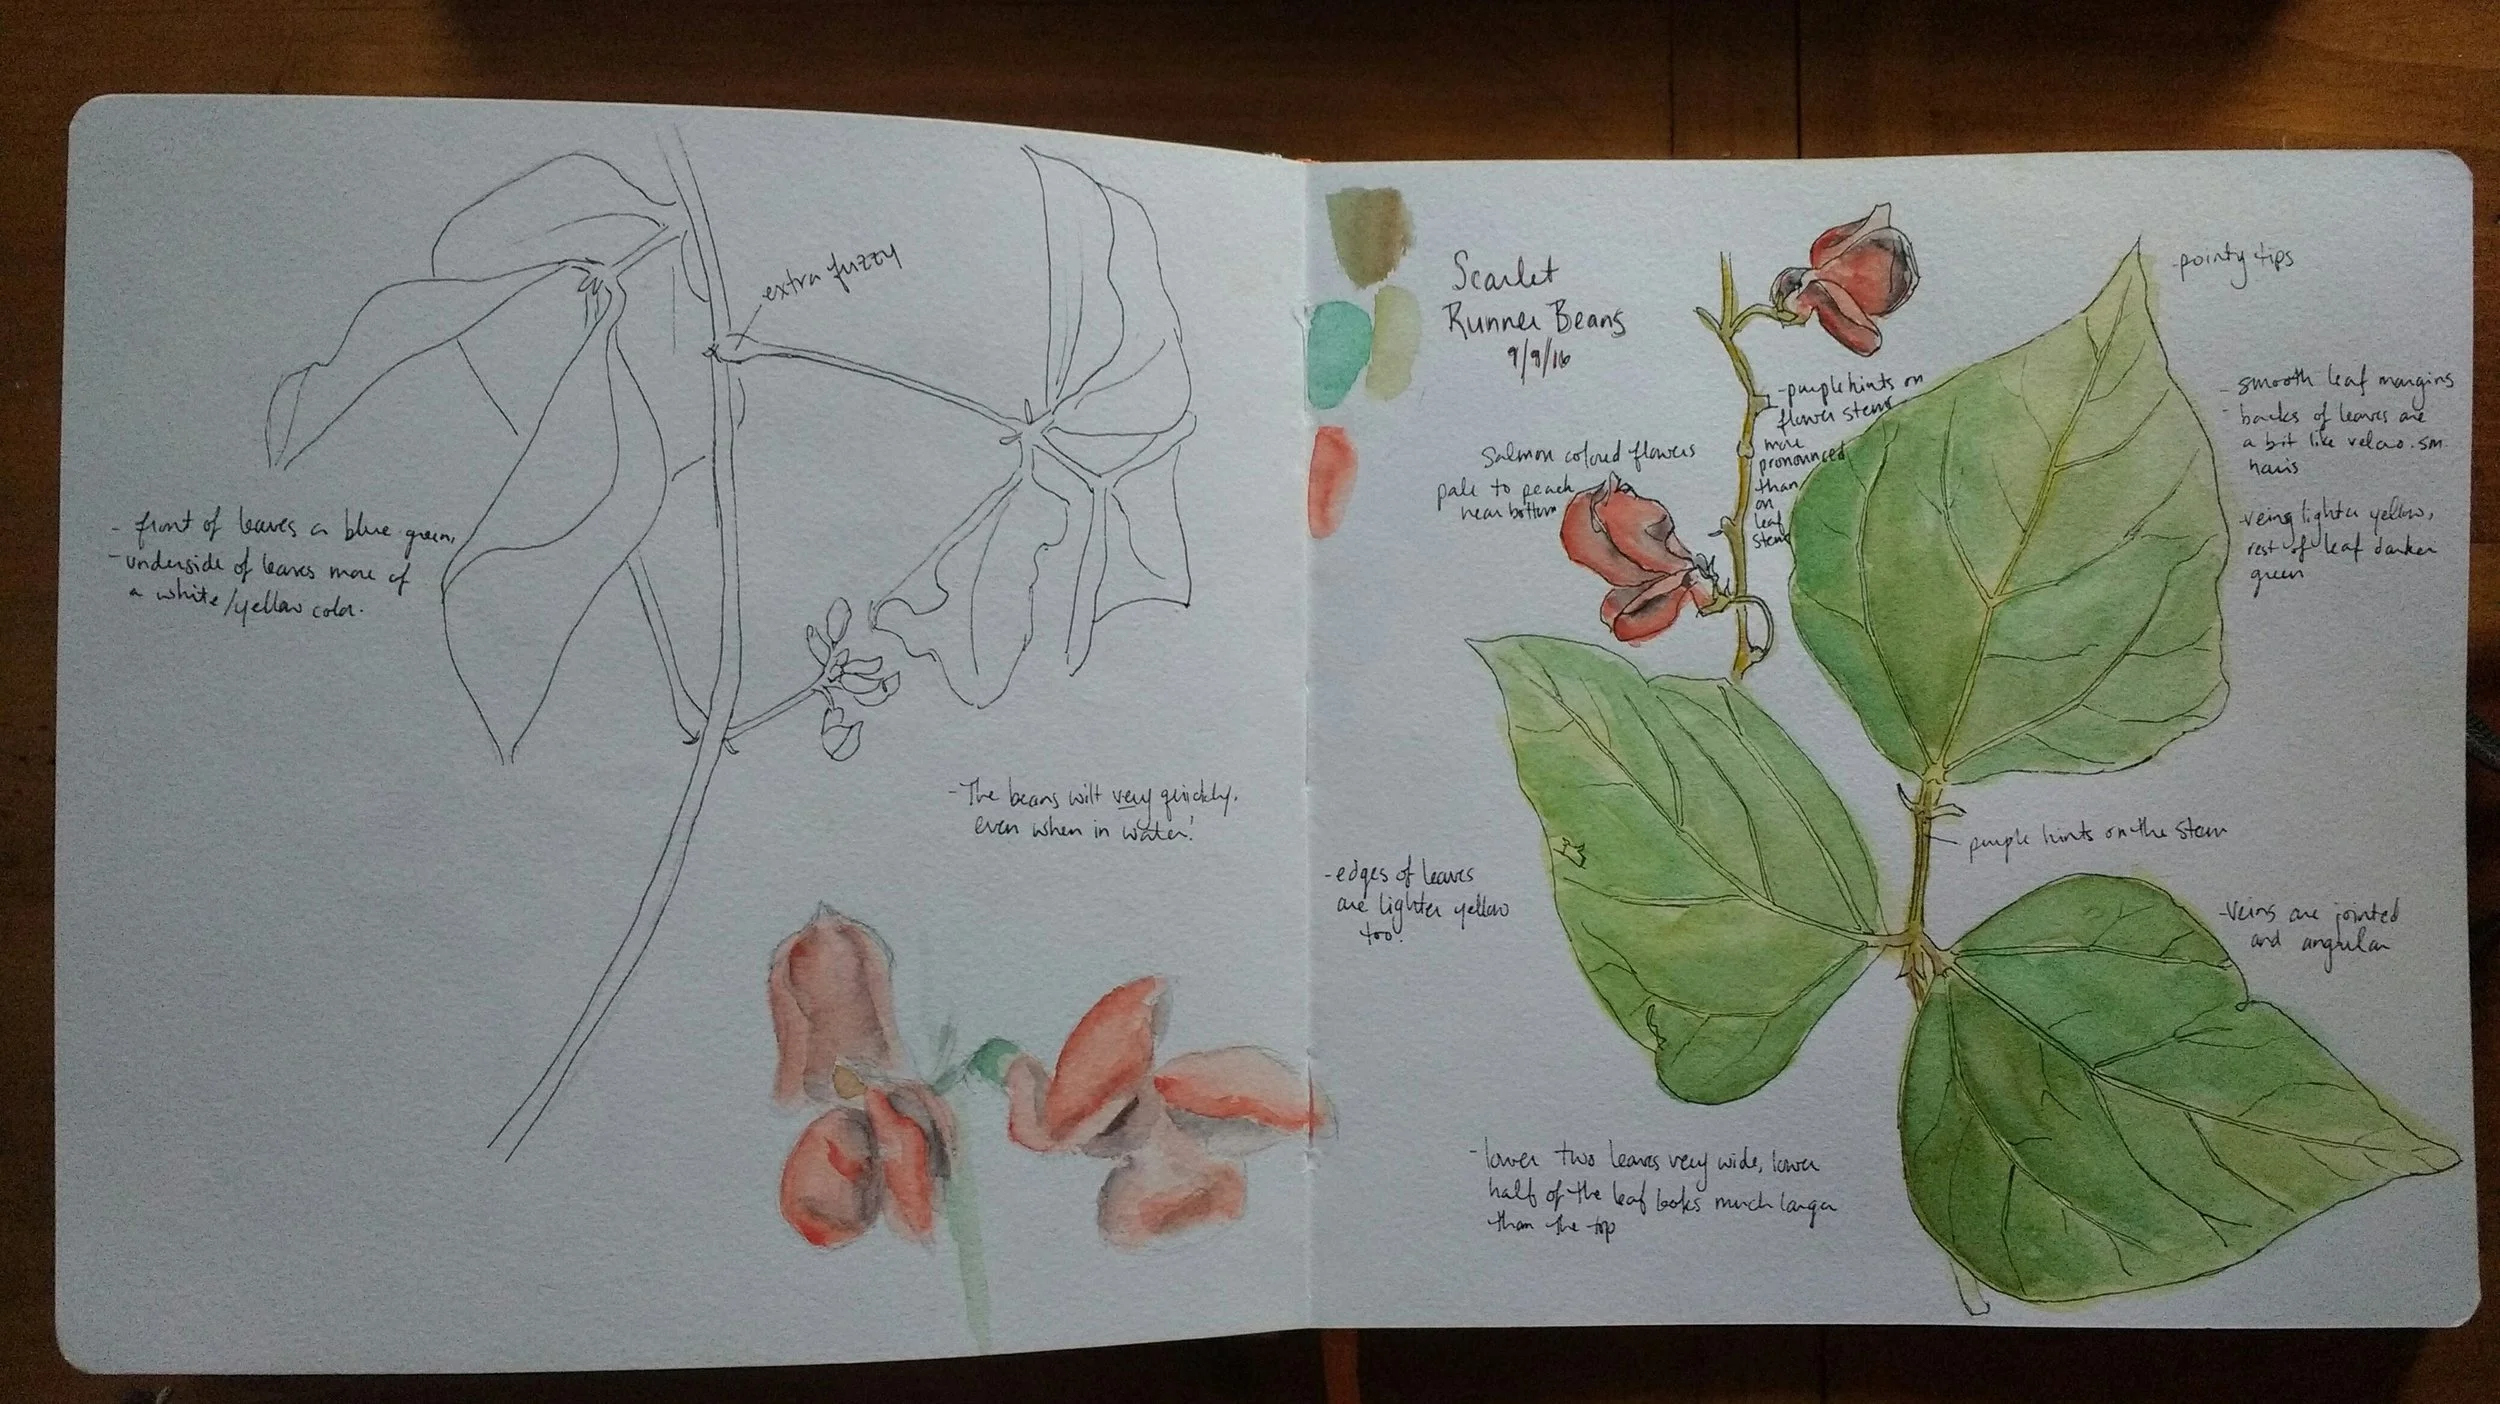 extra fuzzy
- front of leaves a blue green,
- underside of leaves more of
a white/yellow color.
- The beans wilt very quickly,
even when in water!
Scarlet
Runner Beans
9/9/16
- pointy tips
- purple hints on
flower stems
more
pronounced
than
on
leaf
stems
Salmon colored flowers
pale to peach
near bottom
- smooth leaf margins
- backs of leaves are
a bit like velcro. sm.
hairs
- veins lighter yellow,
rest of leaf darker
green
- purple hints on the stem
- edges of leaves
are lighter yellow
too.
- veins are jointed
and angular
- lower two leaves very wide, lower
half of the leaf looks much larger
than the top